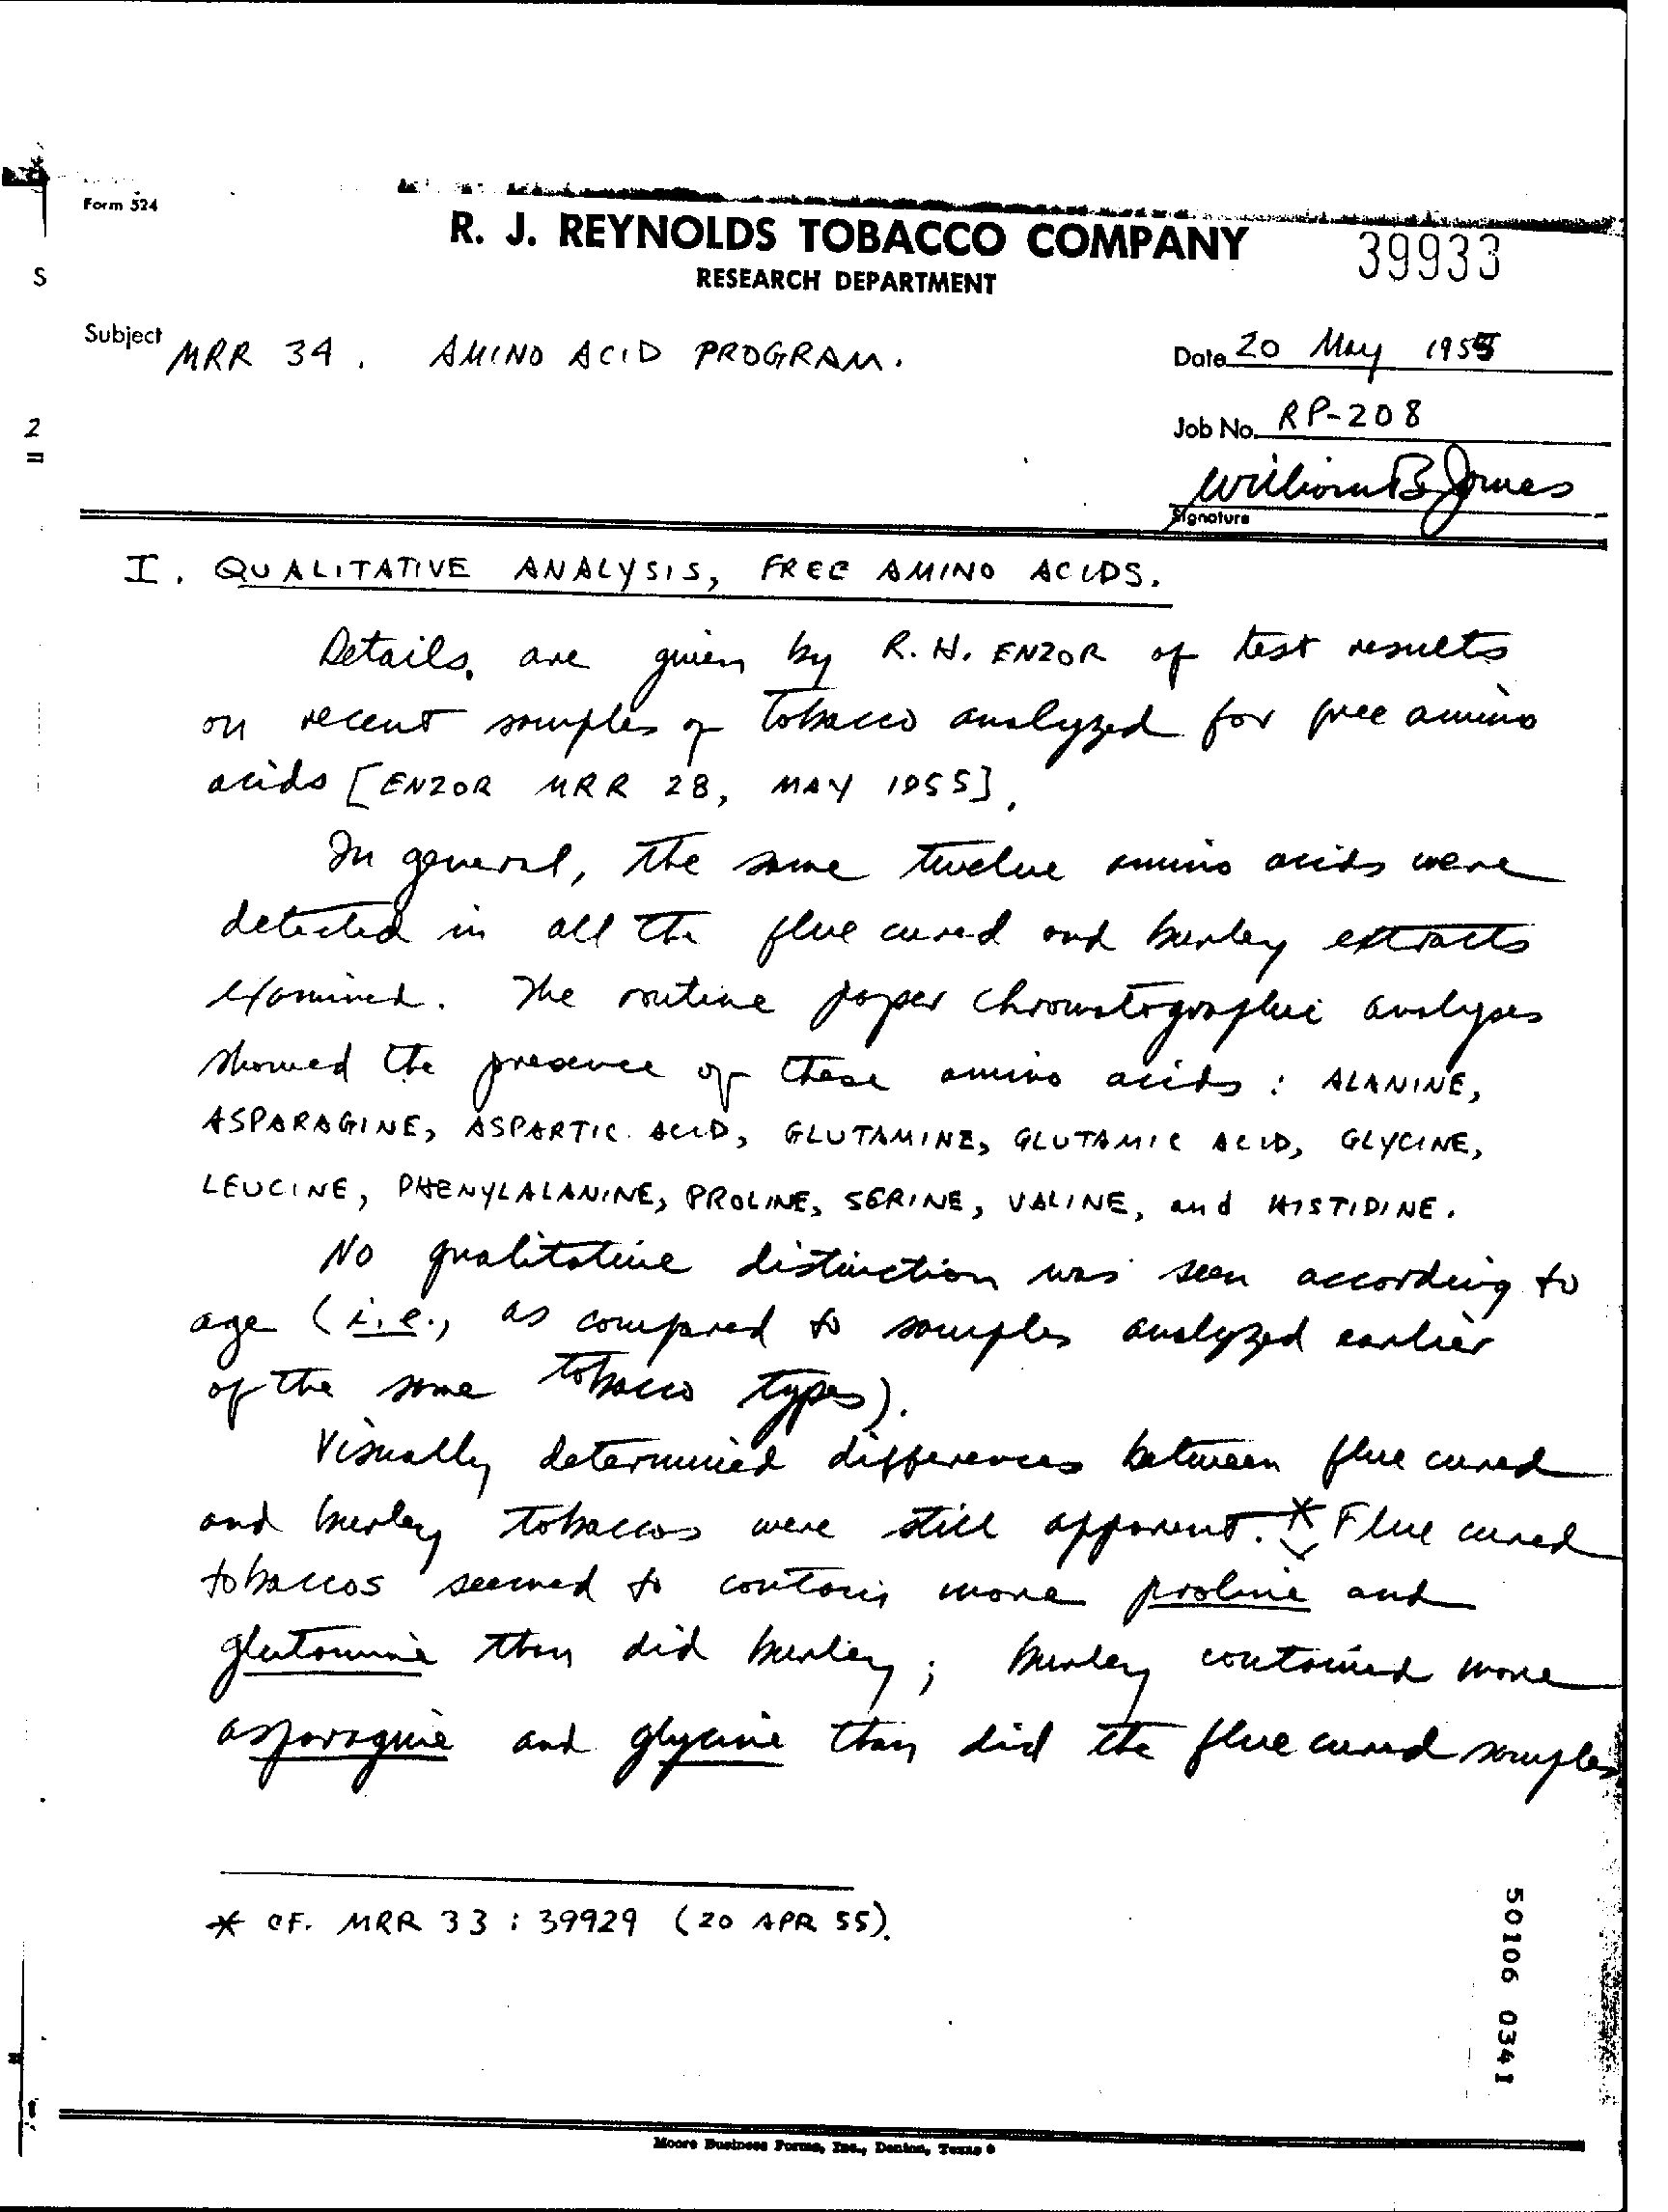 Form 524
R. J. REYNOLDS TOBACCO COMPANY
39933
RESEARCH DEPARTMENT
S
Subject MRR 34. AMINO ACID PROGRAM.
Date 20 May 1955
2
Job No. RP-208
William B Jones
Signature
I. QUALITATIVE ANALYSIS, FREE AMINO ACIDS.
Details, are given by R. H. ENZOR of test results
on recent samples of tobacco analyzed for free amino
acids [ENZOR MRR 28, MAY 1955].
In general, the same twelve amino acids were
detected in all the flue cured and burley extracts
examined. The routine paper chromatographic analyses
showed the presence of these amino acids: ALANINE,
ASPARAGINE, ASPARTIC ACID, GLUTAMINE, GLUTAMIC ACID, GLYCINE,
LEUCINE, PHENYLALANINE, PROLINE, SERINE, VALINE, and HISTIDINE.
No qualitative distinction was seen according to
age (i.e., as compared to samples analyzed earlier
of the same tobacco types).
Visually determined differences between flue cured
and burley tobaccos were still apparent.* Flue cured
tobaccos seemed to contain more proline and
glutamine than did burley; burley contained more
asparagine and glycine than did the flue cured samples
* CF. MRR 33: 39929 (20 APR 55).
50106 0341
Moore Business Forms, Inc., Denton, Texas